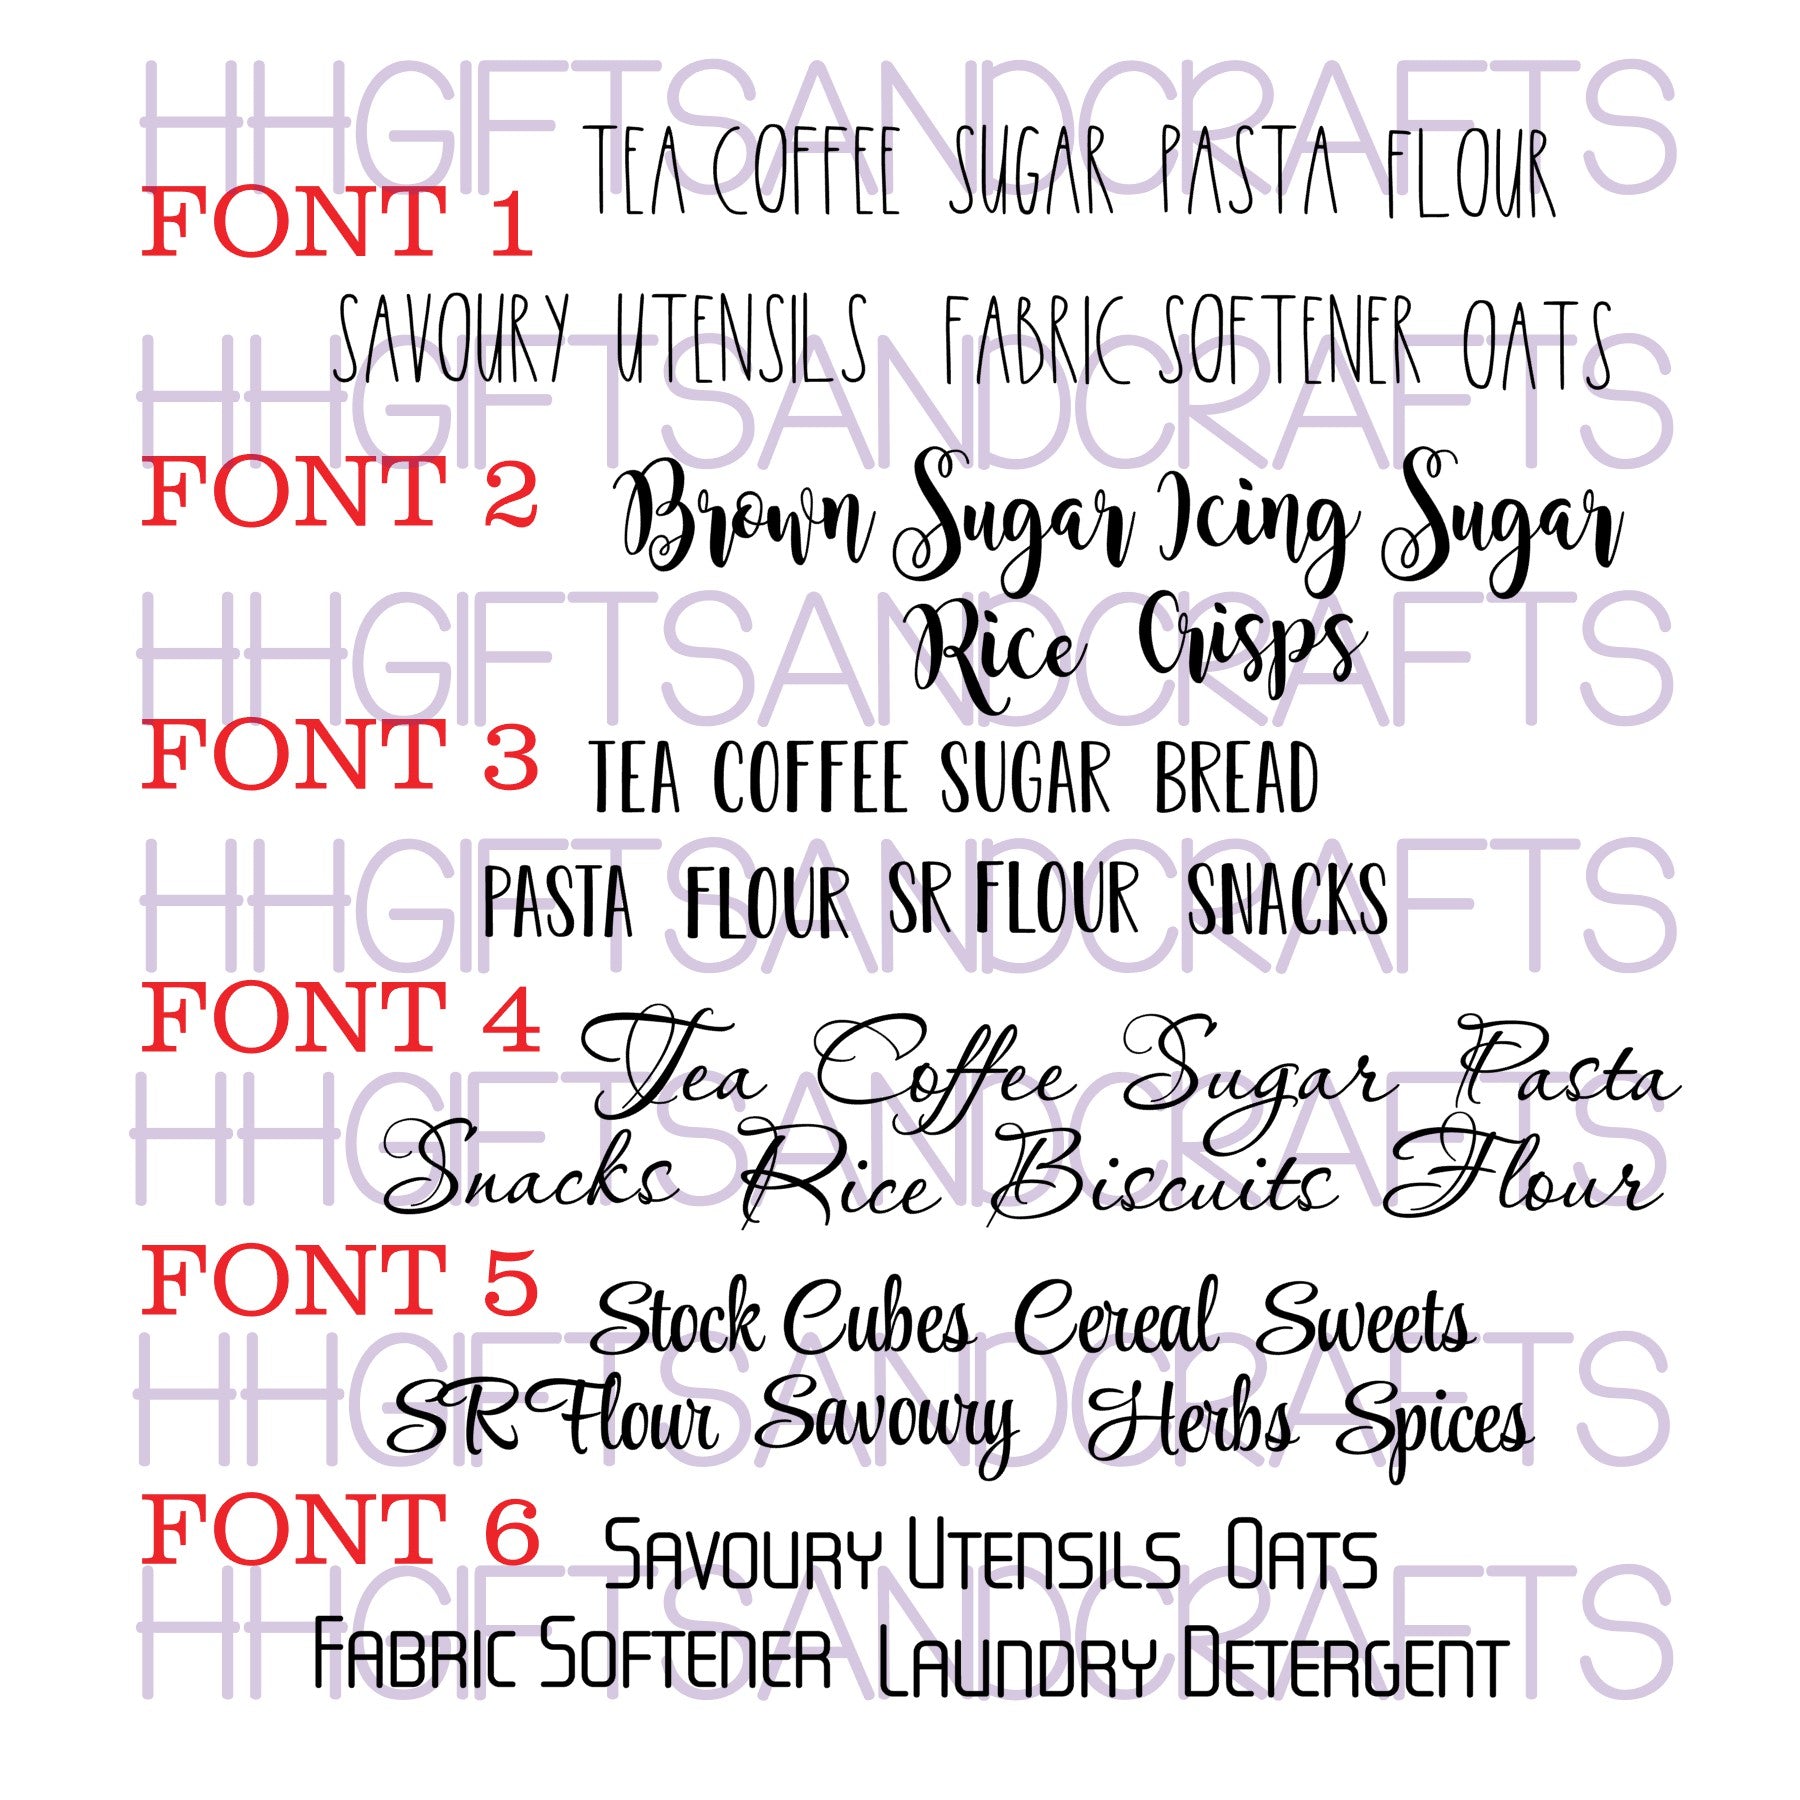 HHGIFTSANDCRAFTS
FONT 1 TEA COFFEE SUGAR PASTA FLOUR
SAVOURY UTENSILS FABRIC SOFTENER OATS
HHGIFTSANDCRAFTS
FONT 2 Brown Sugar Icing Sugar
Rice Crisps
HHGIFTSANDCRAFTS
FONT 3 TEA COFFEE SUGAR BREAD
PASTA FLOUR SR FLOUR SNACKS
HHGIFTSANDCRAFTS
FONT 4 Tea Coffee Sugar Pasta
HHGIFTSANDCRAFTS
Snacks Rice Biscuits Flour
FONT 5 Stock Cubes Cereal Sweets
HHGIFTSANDCRAFTS
SR Flour Savoury Herbs Spices
FONT 6 SAVOURY UTENSILS OATS
HHGIFTSANDCRAFTS
FABRIC SOFTENER LAUNDRY DETERGENT